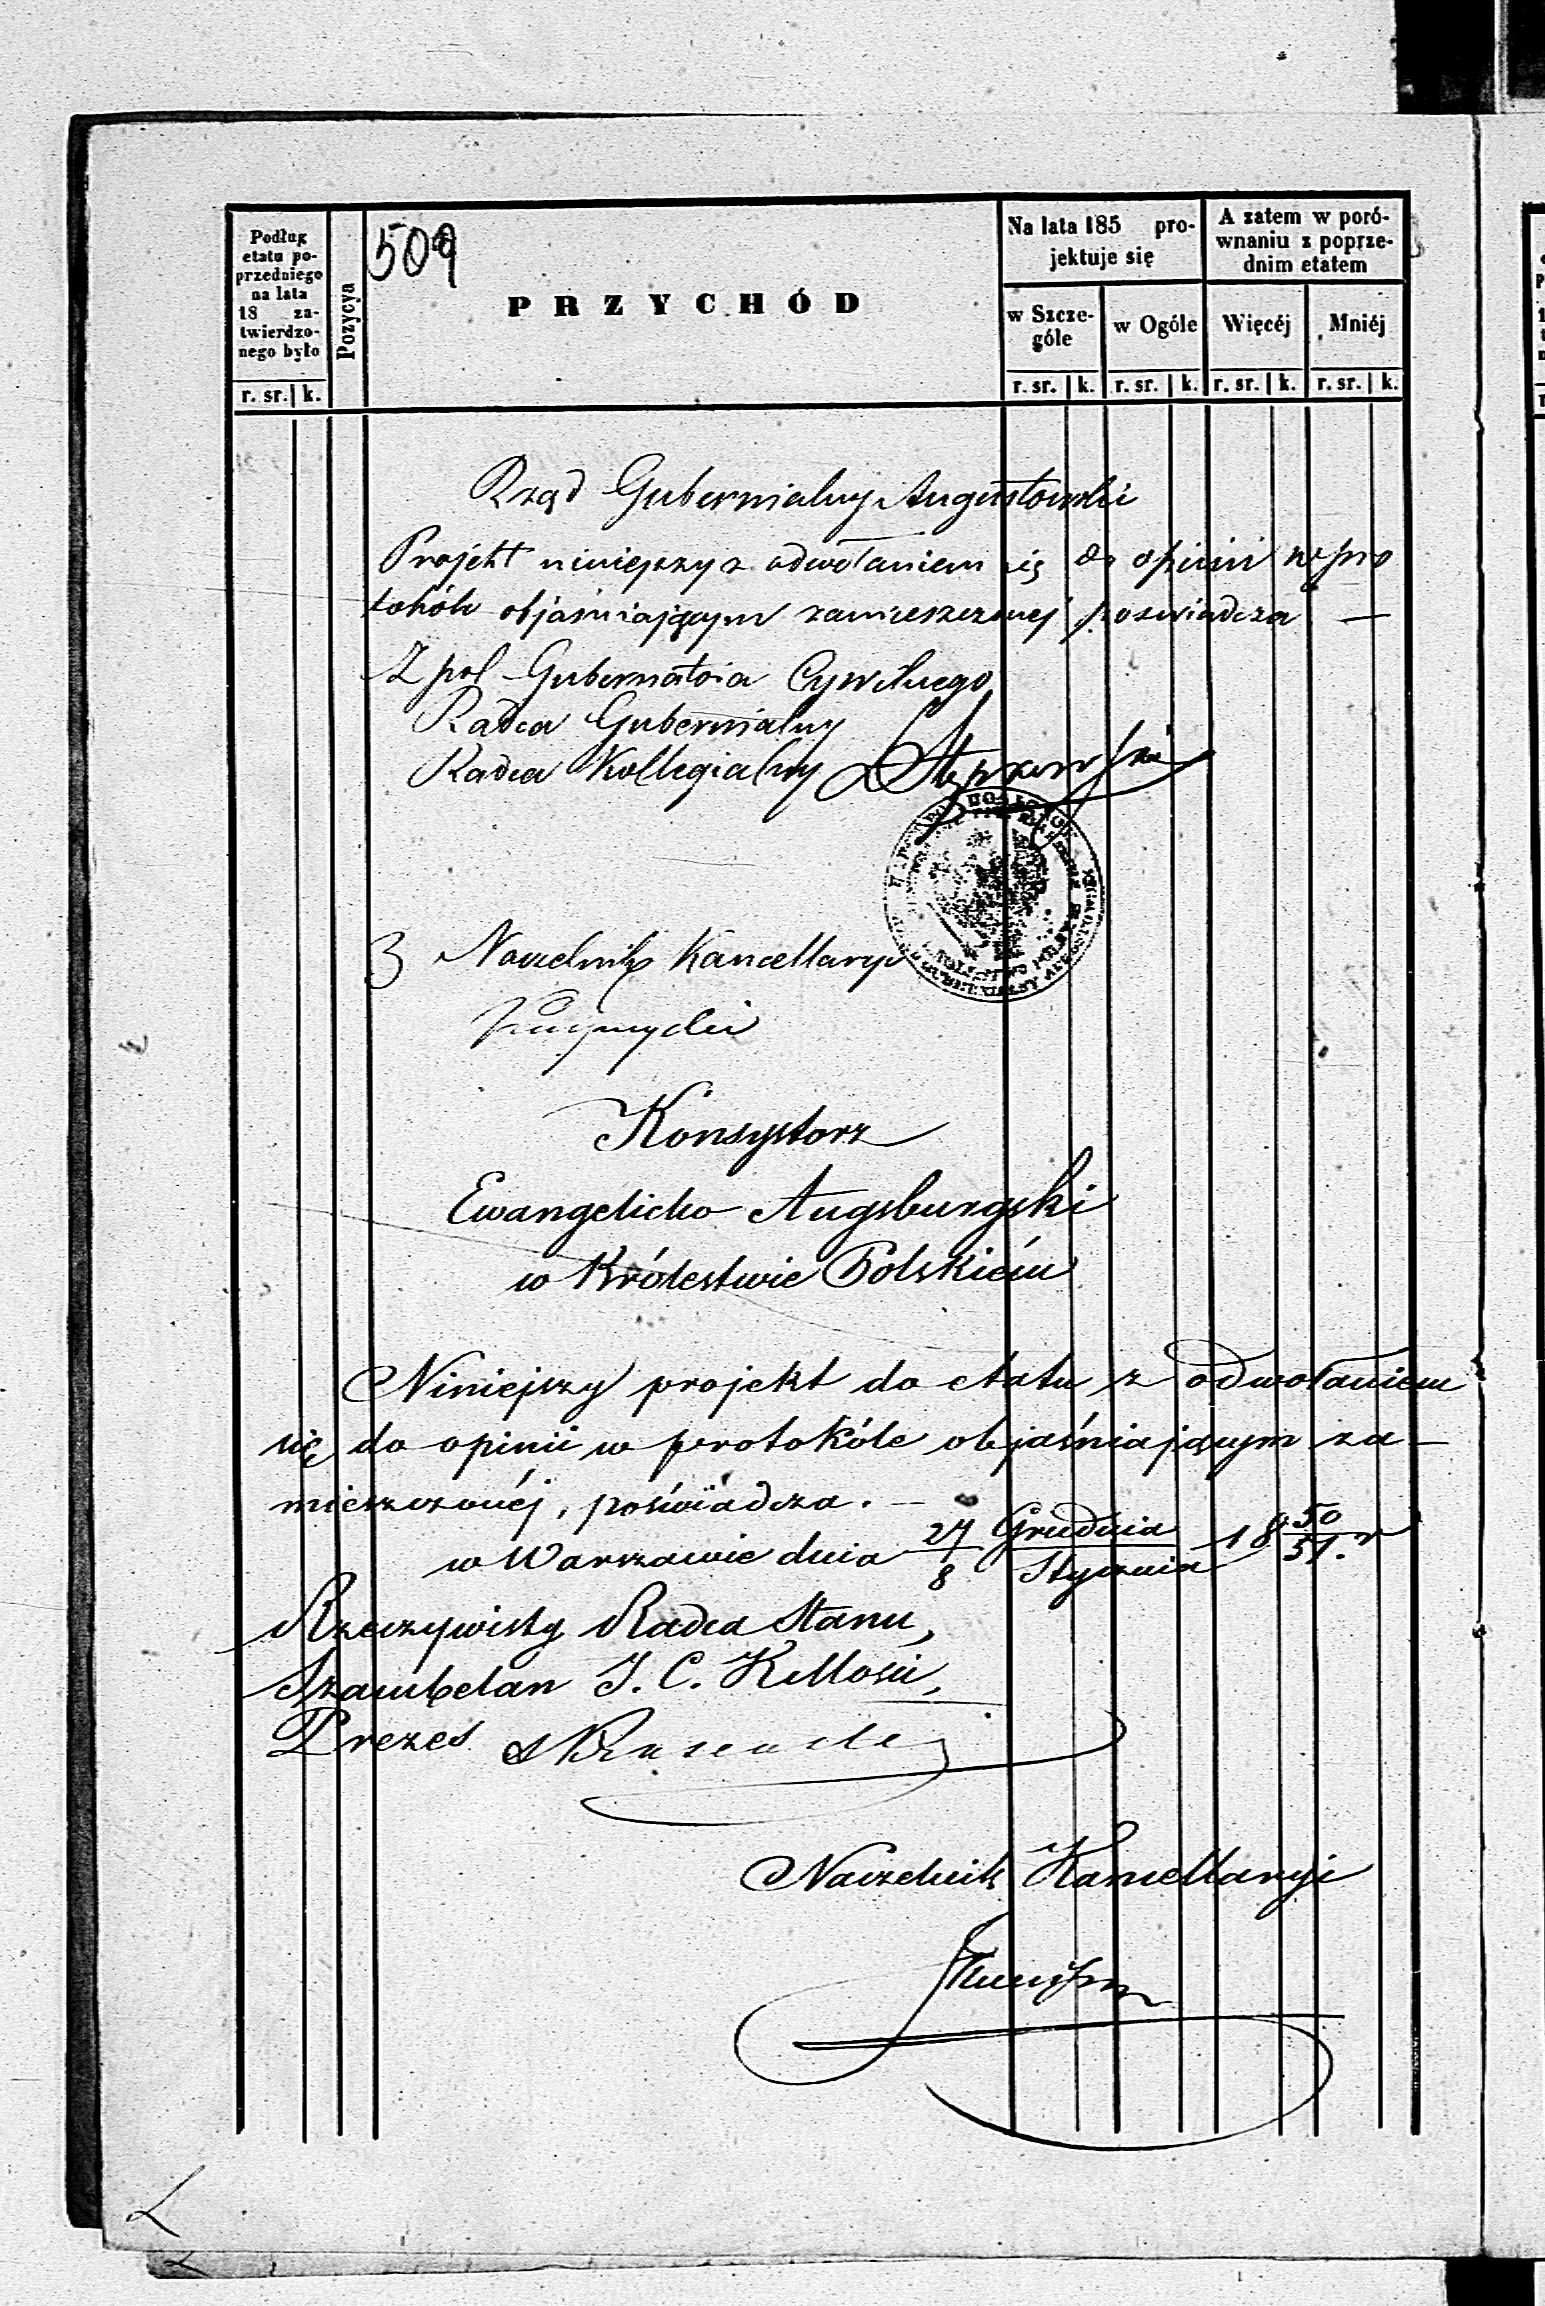 509
Podług
etatu po-
przedniego
na lata
18 za-
twierdzo-
nego było
r. sr. k.
Pozycya
PRZYCHÓD
Na lata 185 pro-
jektuje się
w Szcze-
góle
r. sr. k.
w Ogóle
r. sr. k.
A zatem w poró-
wnaniu z poprze-
dnim etatem
Więcéj
r. sr. k.
Mniéj
r. sr. k.
Rząd Gubernialny Augustowski
Projekt niniejszy z odwołaniem się do opinii w pro
tokóle objaśniającym zamieszczonej poświadcza —
Z pol Gubernatora Cywilnego
Radca Gubernialny
Radca Kollegialny
Naczelnik Kancellaryi
Konsystorz
Ewangelicko Augsburgski
w Królestwie Polskiém
Niniejszy projekt do etatu z odwołaniem
się do opinii w protokóle objaśniającym za-
mieszczonéj, poświadcza. —
w Warszawie dnia 27/8 Grudnia/Stycznia 18 50/51. r
Rzeczywisty Radca Stanu,
Szambelan J. C. K. Mości,
Prezes
Naczelnik Kancellaryi